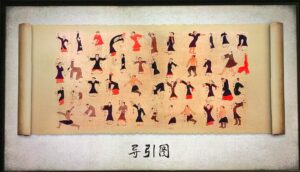 导引图